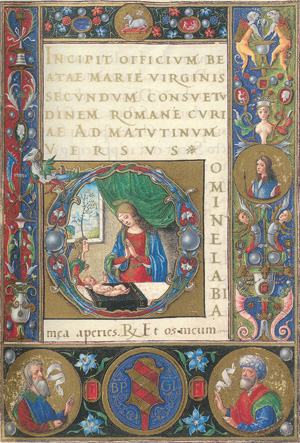 INCIPIT OFFICIUM BE
ATAE MARIE VIRGINIS
SECUNDUM CONSUETU
DINEM ROMANE CURI
AE AD MATUTINUM
VERSUS
DOMINE LABIA
mea aperies. R. Et os meum